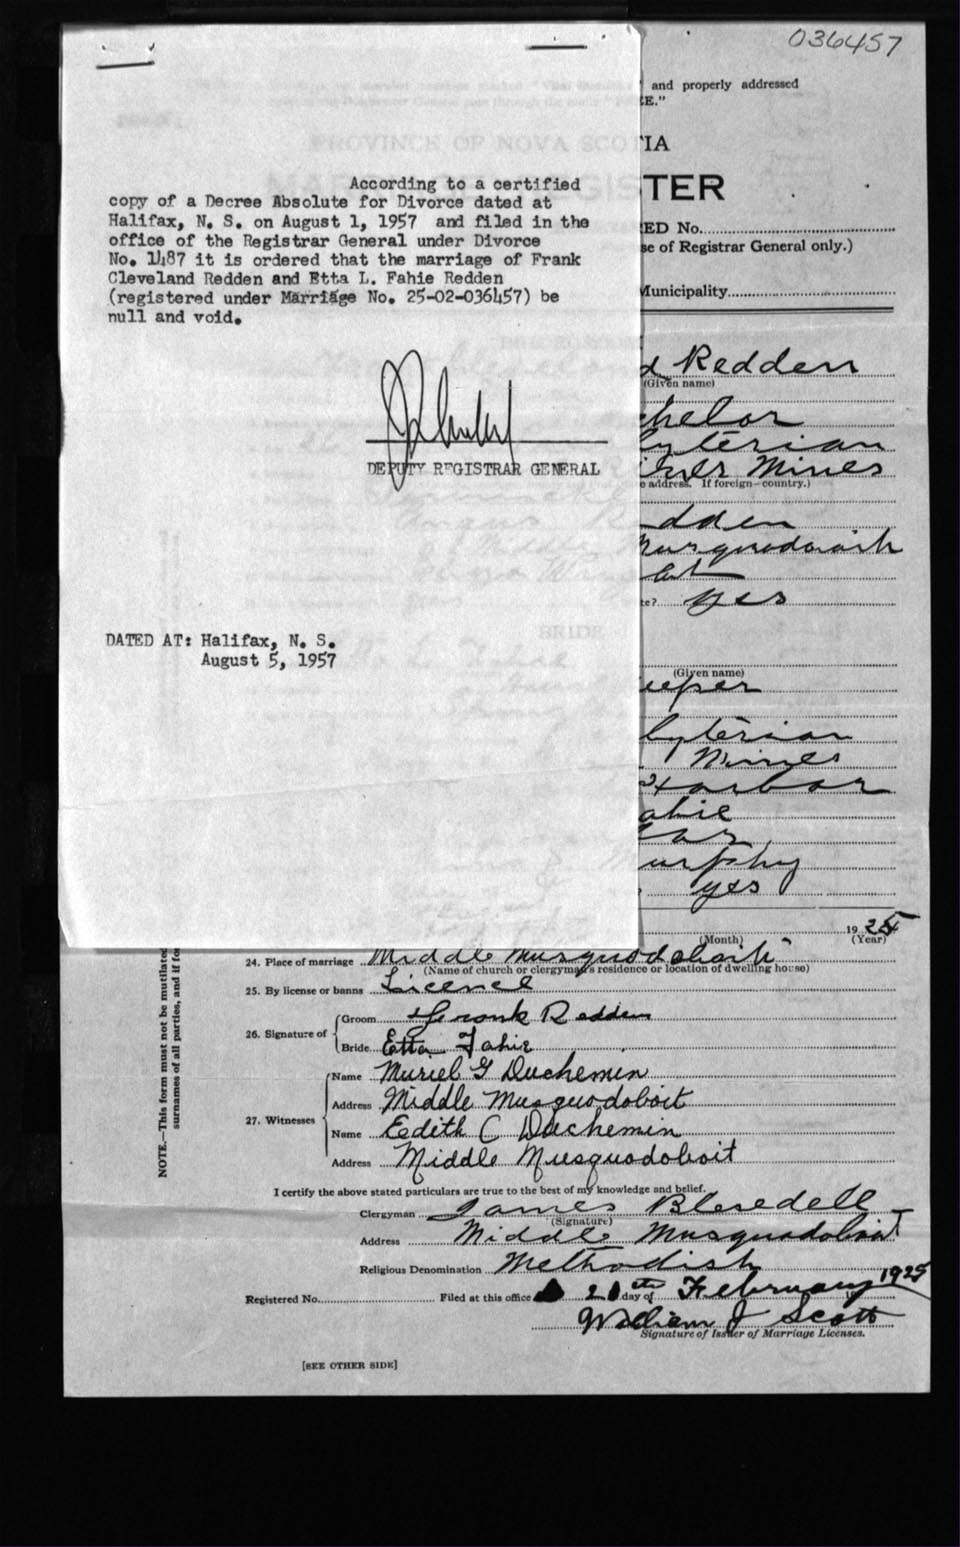 036457
and properly addressed
E."
PROVINCE OF NOVA SCOTIA
TER
ED No.
se of Registrar General only.)
Municipality
According to a certified
copy of a Decree Absolute for Divorce dated at
Halifax, N. S. on August 1, 1957 and filed in the
office of the Registrar General under Divorce
No. 1487 it is ordered that the marriage of Frank
Cleveland Redden and Etta L. Fahie Redden
(registered under Marriage No. 25-02-036457) be
null and void.
DEPUTY REGISTRAR GENERAL
DATED AT: Halifax, N. S.
August 5, 1957
d Redden
(Given name)
chelor
byterian
River Mines
address. If foreign—country.)
dden
Musquodoboit
te? yes
BRIDE
(Given name)
eeper
byterian
Mines
Harbor
ahie
Murphy
yes
1925
(Month) (Year)
24. Place of marriage Middle Musquodoboit
(Name of church or clergyman's residence or location of dwelling house)
25. By license or banns Licence
26. Signature of Groom Frank Redden
Bride Etta Fahie
27. Witnesses Name Muriel G Duchemin
Address Middle Musquodoboit
Name Eedith C Duchemin
Address Middle Musquodoboit
I certify the above stated particulars are true to the best of my knowledge and belief.
Clergyman James Blesedell
(Signature)
Address Middle Musquodoboit
Religious Denomination Methodist
Registered No. Filed at this office 20th day of February 1925
William J Scott
Signature of Issuer of Marriage Licenses.
[SEE OTHER SIDE]
NOTE.—This form must not be mutilated
surnames of all parties, and if fo